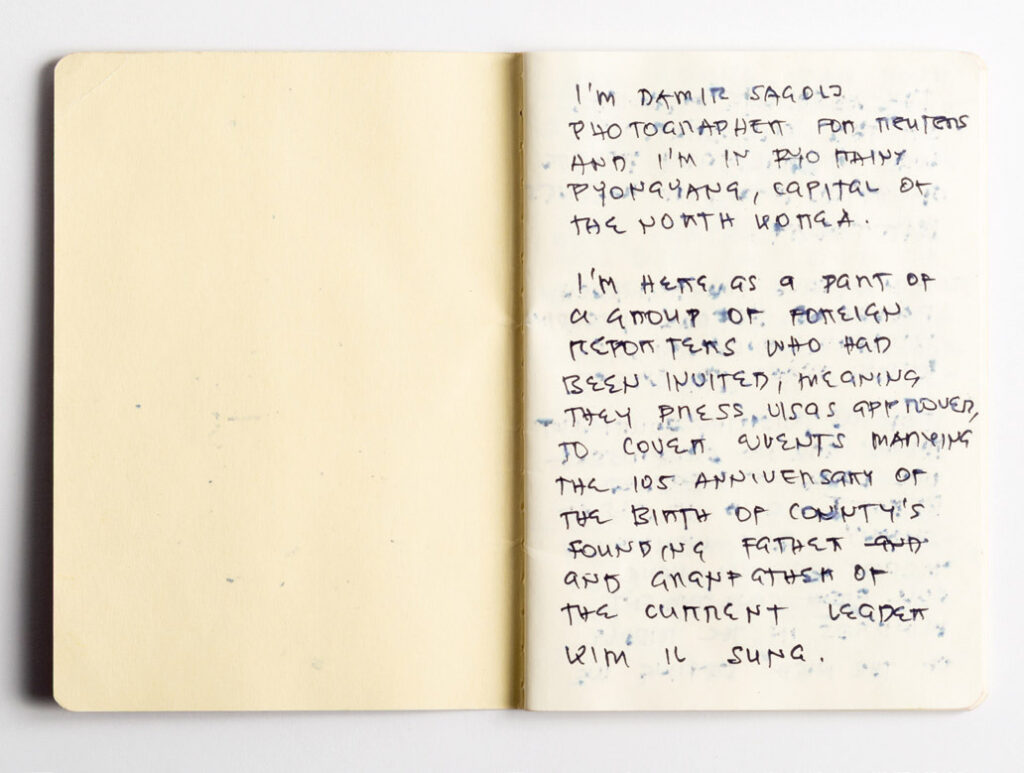 I'M DAMIR SAGOLJ
PHOTOGRAPHER FOR REUTERS
AND I'M IN PYO
PYONGYANG, CAPITAL OF
THE NORTH KOREA.
I'M HERE AS A PART OF
A GROUP OF FOREIGN
REPORTERS WHO HAD
BEEN INVITED, MEANING
THEY PRESS VISAS APPROVED,
TO COVER EVENTS MARKING
THE 105 ANNIVERSARY OF
THE BIRTH OF CONNTY'S
FOUNDING FATHER AND
AND GRANDFATHER OF
THE CURRENT LEADER
KIM IL SUNG.